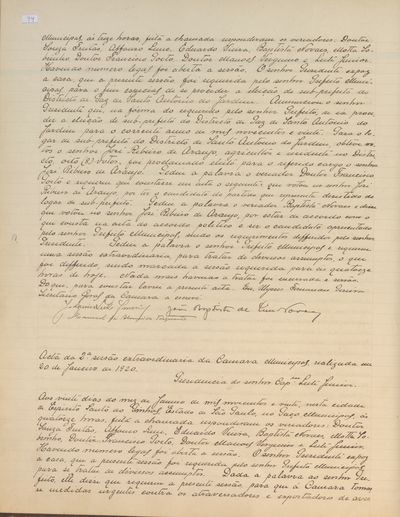 94
Municipal, ás treze horas, feita a chamada responderam os vereadores: Doutor
Souza Freitas, Affonso Lima, Eduardo Vieira, Baptista Novaes, Motta So-
brinho, Doutor Francisco Porto, Doutor Manoel Junqueira e Leite Junior.
Havendo numero legal foi aberta a sessão. O senhor Presidente expoz
a casa, que a presente sessão foi requerida pelo senhor Prefeito Muni-
cipal para o fim especial de se proceder a eleição de sub-prefeito do
Districto de Paz de Santo Antonio do Jardim. Annunciou o senhor
Presidente que, na forma do requerido pelo senhor Prefeito, se ia proce-
der a eleição de sub-prefeito do Districto de Paz de Santo Antonio do
Jardim para o corrente anno de mil novecentos e vinte. Para o lo-
gar de sub-prefeito do Districto de Santo Antonio do Jardim, obteve vo-
tos o senhor José Ribeiro de Araujo, agricultor e residente no Distri-
cto, oito (8) votos, foi proclamado eleito para o referido cargo o senhor
José Ribeiro de Araujo. Pediu a palavra o vereador Doutor Francisco
Porto e requereu que constasse em acta o seguinte: que votou no senhor José
Ribeiro de Araujo, por ser o candidato do partido
logar de sub-prefeito. Pediu a palavra o vereador Baptista Novaes e disse
que votou no senhor José Ribeiro de Araujo, por estar de accordo com o
que consta na acta do accordo politico e ser o candidato apresentado
pelo senhor Prefeito Municipal, sendo os requerimentos deferidos pelo senhor
Presidente. Pediu a palavra o senhor Prefeito Municipal e requereu
uma sessão extraordinaria para tratar de diversos assumptos, o que
foi deferido sendo marcada a sessão requerida para as quatorze
horas de hoje. Nada mais havendo a tratar foi encerrada a sessão.
Do que, para constar lavrei a presente acta. Eu,
Secretario Geral da Camara a escrevi.
João Baptista de Lima Novaes
Acta da 2ª sessão extraordinaria da Camara Municipal, realizada em
20 de Janeiro de 1920.
Presidencia do senhor Capm. Leite Junior.
Aos vinte dias do mez de Janeiro de mil novecentos e vinte, nesta cidade
de Espirito Santo do Pinhal, Estado de São Paulo, no Paço Municipal, ás
quatorze horas, feita a chamada responderam os vereadores: Doutor
Souza Freitas, Affonso Lima, Eduardo Vieira, Baptista Novaes, Motta So-
brinho, Doutor Francisco Porto, Doutor Manoel Junqueira e Leite Junior.
Havendo numero legal foi aberta a sessão. O senhor Presidente expoz
a casa, que a presente sessão foi requerida pelo senhor Prefeito Municipal
para se tratar de diversos assumptos. Dada a palavra ao senhor Pre-
feito, elle disse que requereu a presente sessão, para que a Camara tomas-
se medidas urgentes contra os atravessadores e exportadores de aves